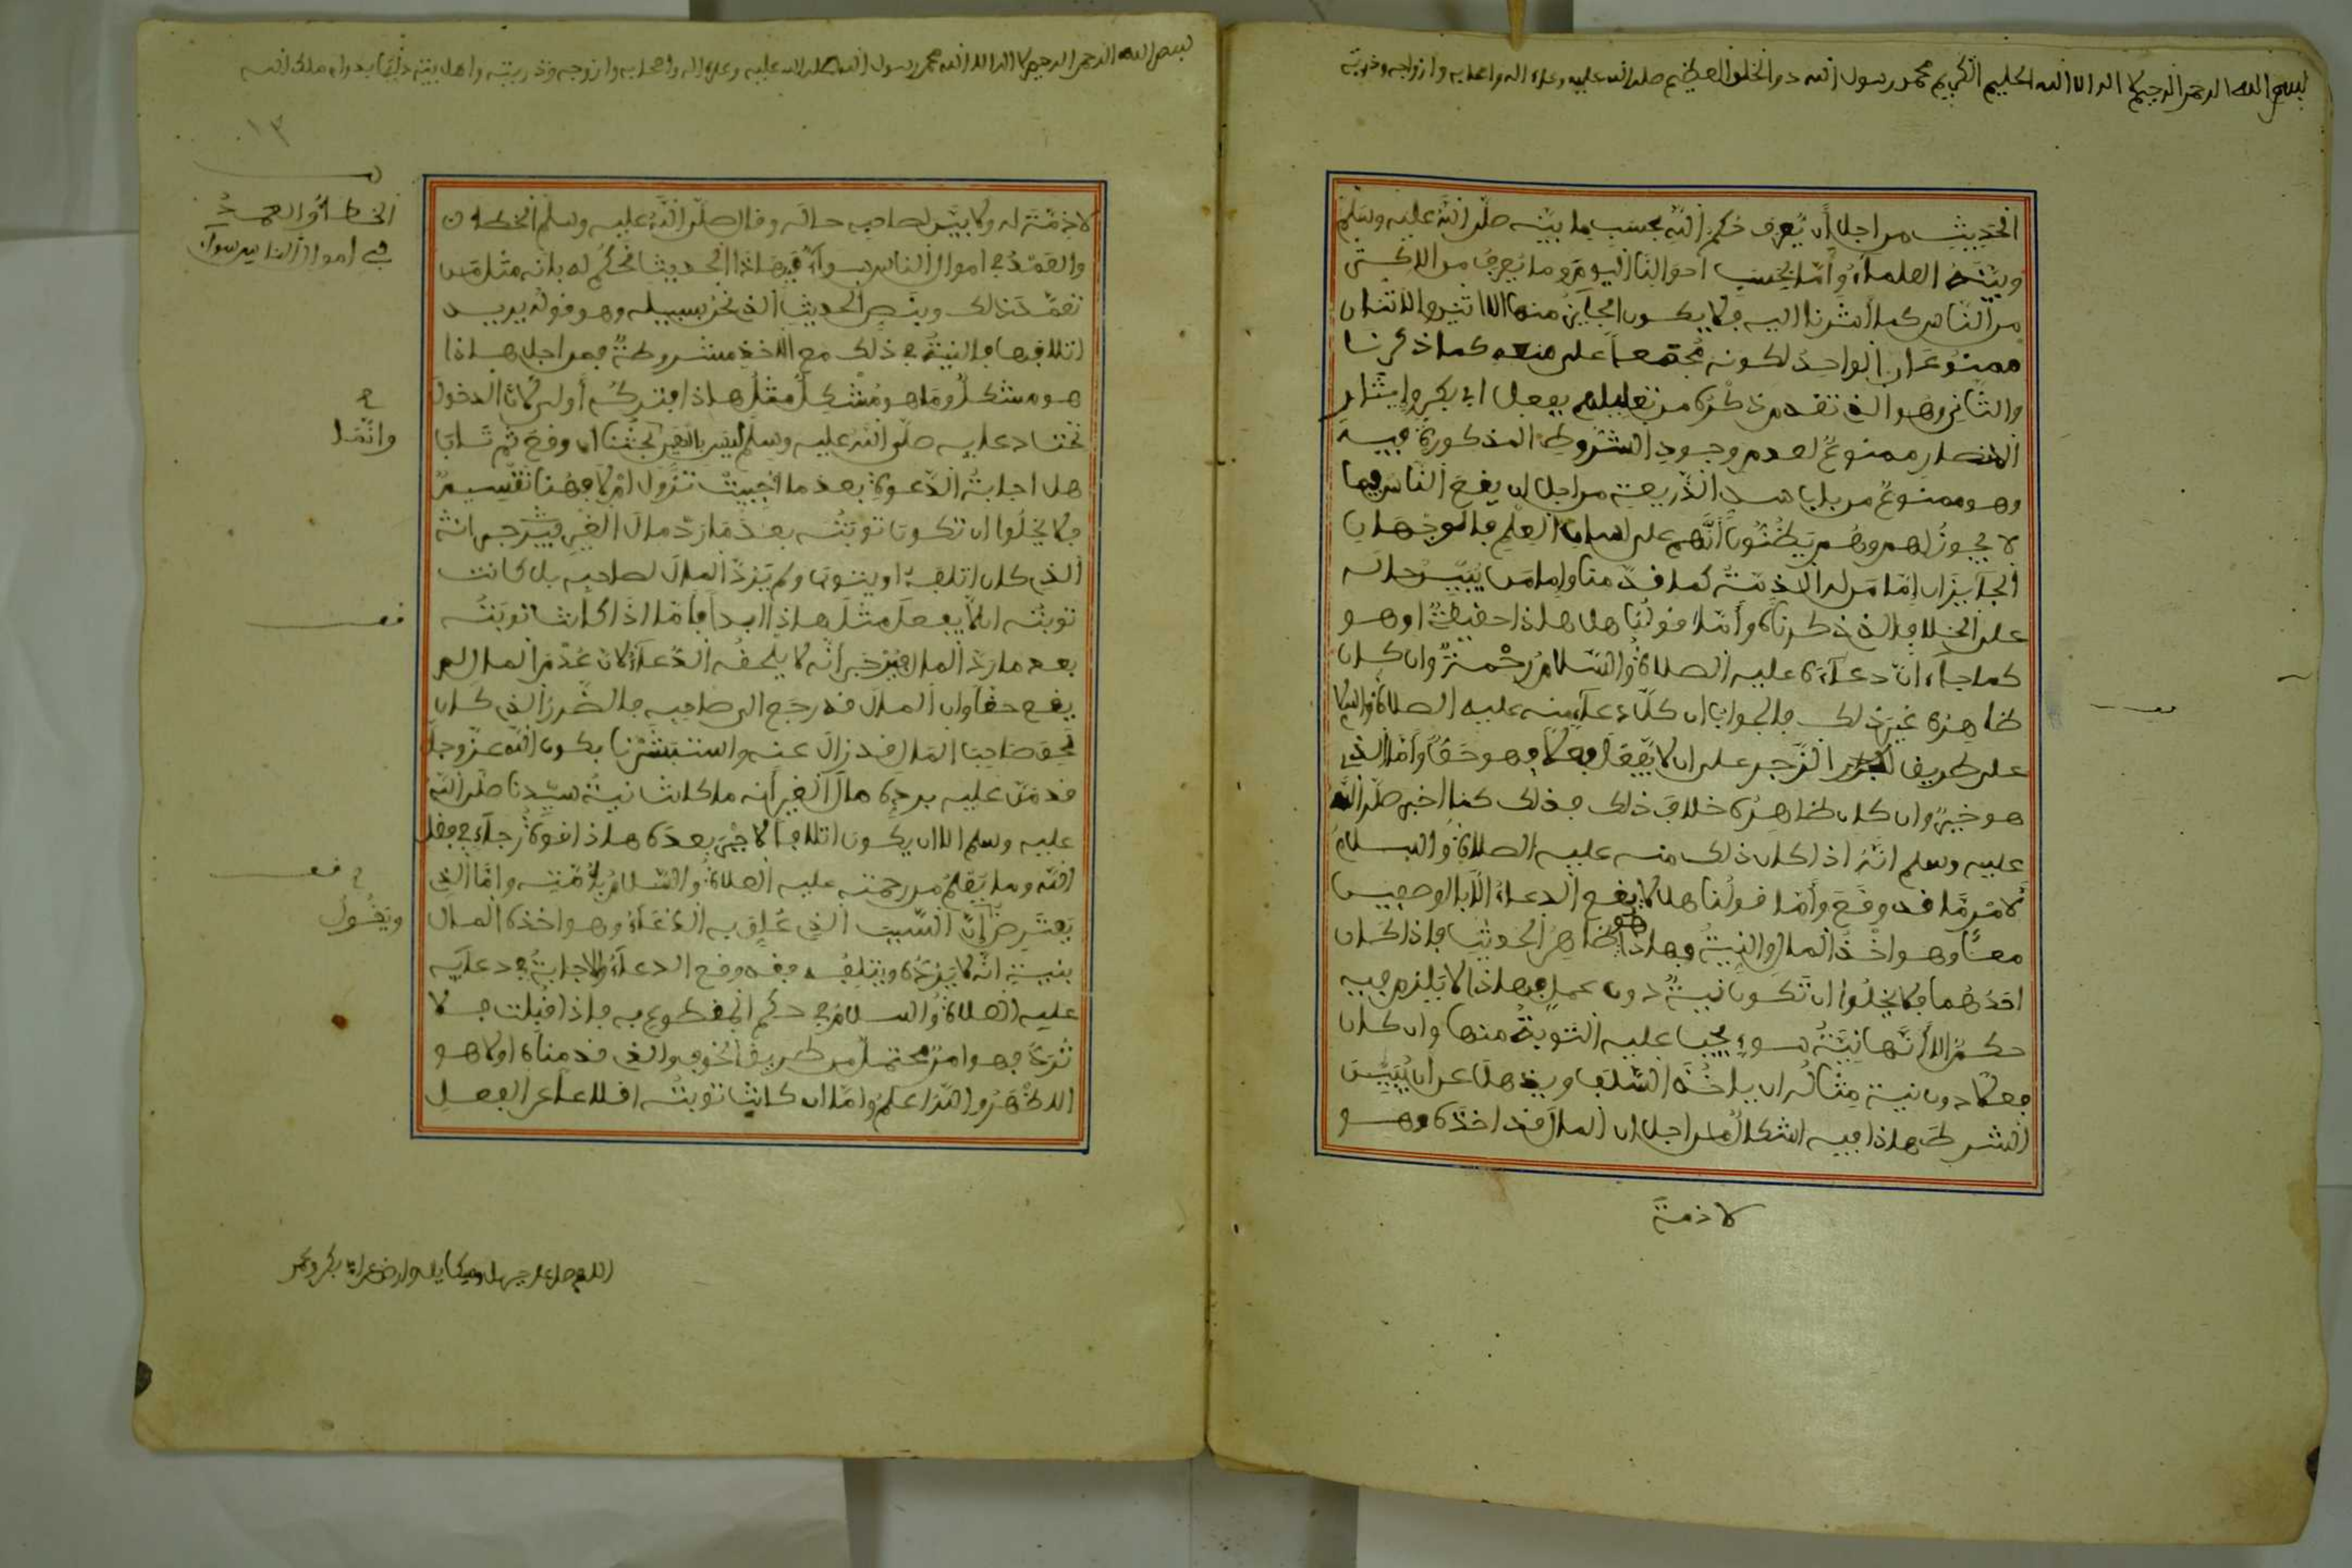 بسم الله الرحمن الرحيم لا اله الا الله الحليم الكريم محمد رسول الله ذو الخلق العظيم صلى الله عليه وعلى اله واصحابه وازواجه وذريته
الحديث من اجل أن يُعرف حُكم الله بحسب ما بيّنه صلّى الله عليه وسلم
وبيّنه العلماءُ وأمّا بحسب أحوالنا اليوم وما يُعرف من الاكثر
من الناس كما أشرنا اليه فلا يكون الجايز منها الا اثنين والاثنان
ممنوعان الواحد لكونه مُجتمعاً على منعه كما ذكرنا
والثاني وهو الذي تقدم ذكره من تعليلهم بفعل ابي بكر وإيثار
الانصار ممنوعٌ لعدم وجود الشروط المذكورة فيه
وهو ممنوعٌ من باب سد الذّريعة من اجل ان يقع الناس فيما
لا يجوز لهم وهُم يَظنّون أنّهم على لسان العلم فالوجهان
الجايزان إمّا من له الاذمّة كما قدّمنا وإما من يُبيّن حاله
على الخلاف الذي ذكرناه وأمّا قولُنا هل هاذا حقيقةٌ او هو
كما جاء انّ دعاءه عليه الصلاةُ والسّلامُ رحمةٌ وان كان
ظاهره غير ذلك فالجواب ان كلّ دعاءٍ منه عليه الصلاة والسلام
على طريق الزّجر على ان لا يُفعل فعلا فهو حَقّاً وأمّا الذي
هو خبرٌ وان كان ظاهره خلاف ذلك فذلك كما اخبر صلّى الله
عليه وسلم انّه اذا كان ذلك منه عليه الصلاةُ والسلامُ
لأمرٍ مّا قد وقع وأمّا قولُنا هل لا يقع الدعاءُ الا بالوصفين
معًا وهو اخذُ المال والنيةُ فهاذا هو ظاهرُ الحديث فاذا كان
احدُهما فلا يخلُوا ان تكون نيةٌ دون عملٍ فهاذا لا يلزم فيه
حكمٌ الا أنّها نيّةُ سوءٍ يجب عليه التوبةُ منها وان كان
فعلا دون نية مثالُه ان ياخُذ السّلَف ويذهل عن أن يُبيّن
الشرط فهاذا فيه اشكالٌ من اجل ان المال قد اخذه وهو
لاذمة
بسم الله الرحمن الرحيم لا اله الا الله محمد رسول الله صلى الله عليه وعلى اله واصحابه وازوجه وذريته واهل بيته دايما بدوام ملك الله
١٣
لاذمّة له ولا بيّن لصاحبه حاله وقال صلّى الله عليه وسلم الخطأ
والعَمْدُ في اموال الناس سواءٌ فبهاذا الحديث نحكُم له بانه مثل من
تعمّد ذلك وبنصّ الحديث الذي نحن بسبيله وهو قوله يريد
اتلافها فالنيةُ في ذلك مع الاخذ مشروطةٌ فمن اجل هاذا
هو مشكلٌ وما هو مُشكلٌ مثلُ هاذا فتركُه أولى لأن الدخول
تحت دعايه صلّى الله عليه وسلم ليس بالهيّن بحثنا ان وقع ثم تاب
هل اجابةُ الدّعوة بعد ما أُجيبتْ تزول أم لا فهُنا تقسيمٌ
فلا يخلُوا ان تكون توبتُه بعد مَا ردّ مال الغير فيُترجى انه
الذي كان اتلفه او ينتوي ولم يَردّ المال لصاحبه بل كانت
توبتُه الّا يفعل مثل هاذا ابداً فأمّا اذا كانت توبتُه
بعد ما ردّ المال فيرجى انه لا يلحقُه الدّعاءُ لانّ عُدْمَ المال لم
يقع حقا وان المال قد رجع الى صاحبه فالضّرر الذي كان
لحق صاحب المال قد زال عنه واستبشرنا بكون الله عزّوجل
قد منّ عليه بردِه مال الغير أنه ما كانت نيةُ سيّدنا صلّى الله
عليه وسلم الا ان يكون اتلافاً لا جبر بعده هاذا قوةُ رجاءٍ في فضل
الله وما يُعلمُ من رحمته عليه الصلاةُ والسّلامُ بأمّته وامّا الذي
يَعترِض انّ السّبب الذي عُلّق به الدّعاءُ وهو اخذه المال
بنية انّه لا يرُدّه ويتلفُه فقد وقع الدعاءُ والاجابةُ في دعايه
عليه الصلاةُ والسلامُ في حكم المقطوع به فاذا قبلت فلا
تُردّ فهو امرٌ محتملٌ من طريق الخوف والذي قدمناه اولا هو
الاظْهَرُ والله اعلمُ وامّا ان كانت توبتُه اقلاعا عن الفعل
الخطأُ والعمدُ
في اموال الناس سواءٌ
وانّما
ويقُولُ
اللهم صل على جبريل وميكايل وارض عن ابي بكر وعمر